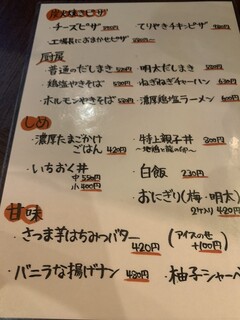 チーズピザ てりやきチキンピザ
工場長におまかせピザ
厨房
普通のだしまき 520円 明太だしまき 580円
鶏塩やきそば 550円 ねぎねぎチャーハン 630円
ホルモンやきそば 濃厚鶏塩ラーメン 600円
しめ
濃厚たまごかけ ごはん 420円 特上親子丼 800円
いちおく丼 中 550円 小 400円 白飯 230円
おにぎり(梅・明太) 2ケ入り 420円
甘味
さつま芋はちみつバター 420円 (アイスのせ +100円)
バニラな揚げナン 480円 柚子シャーベ